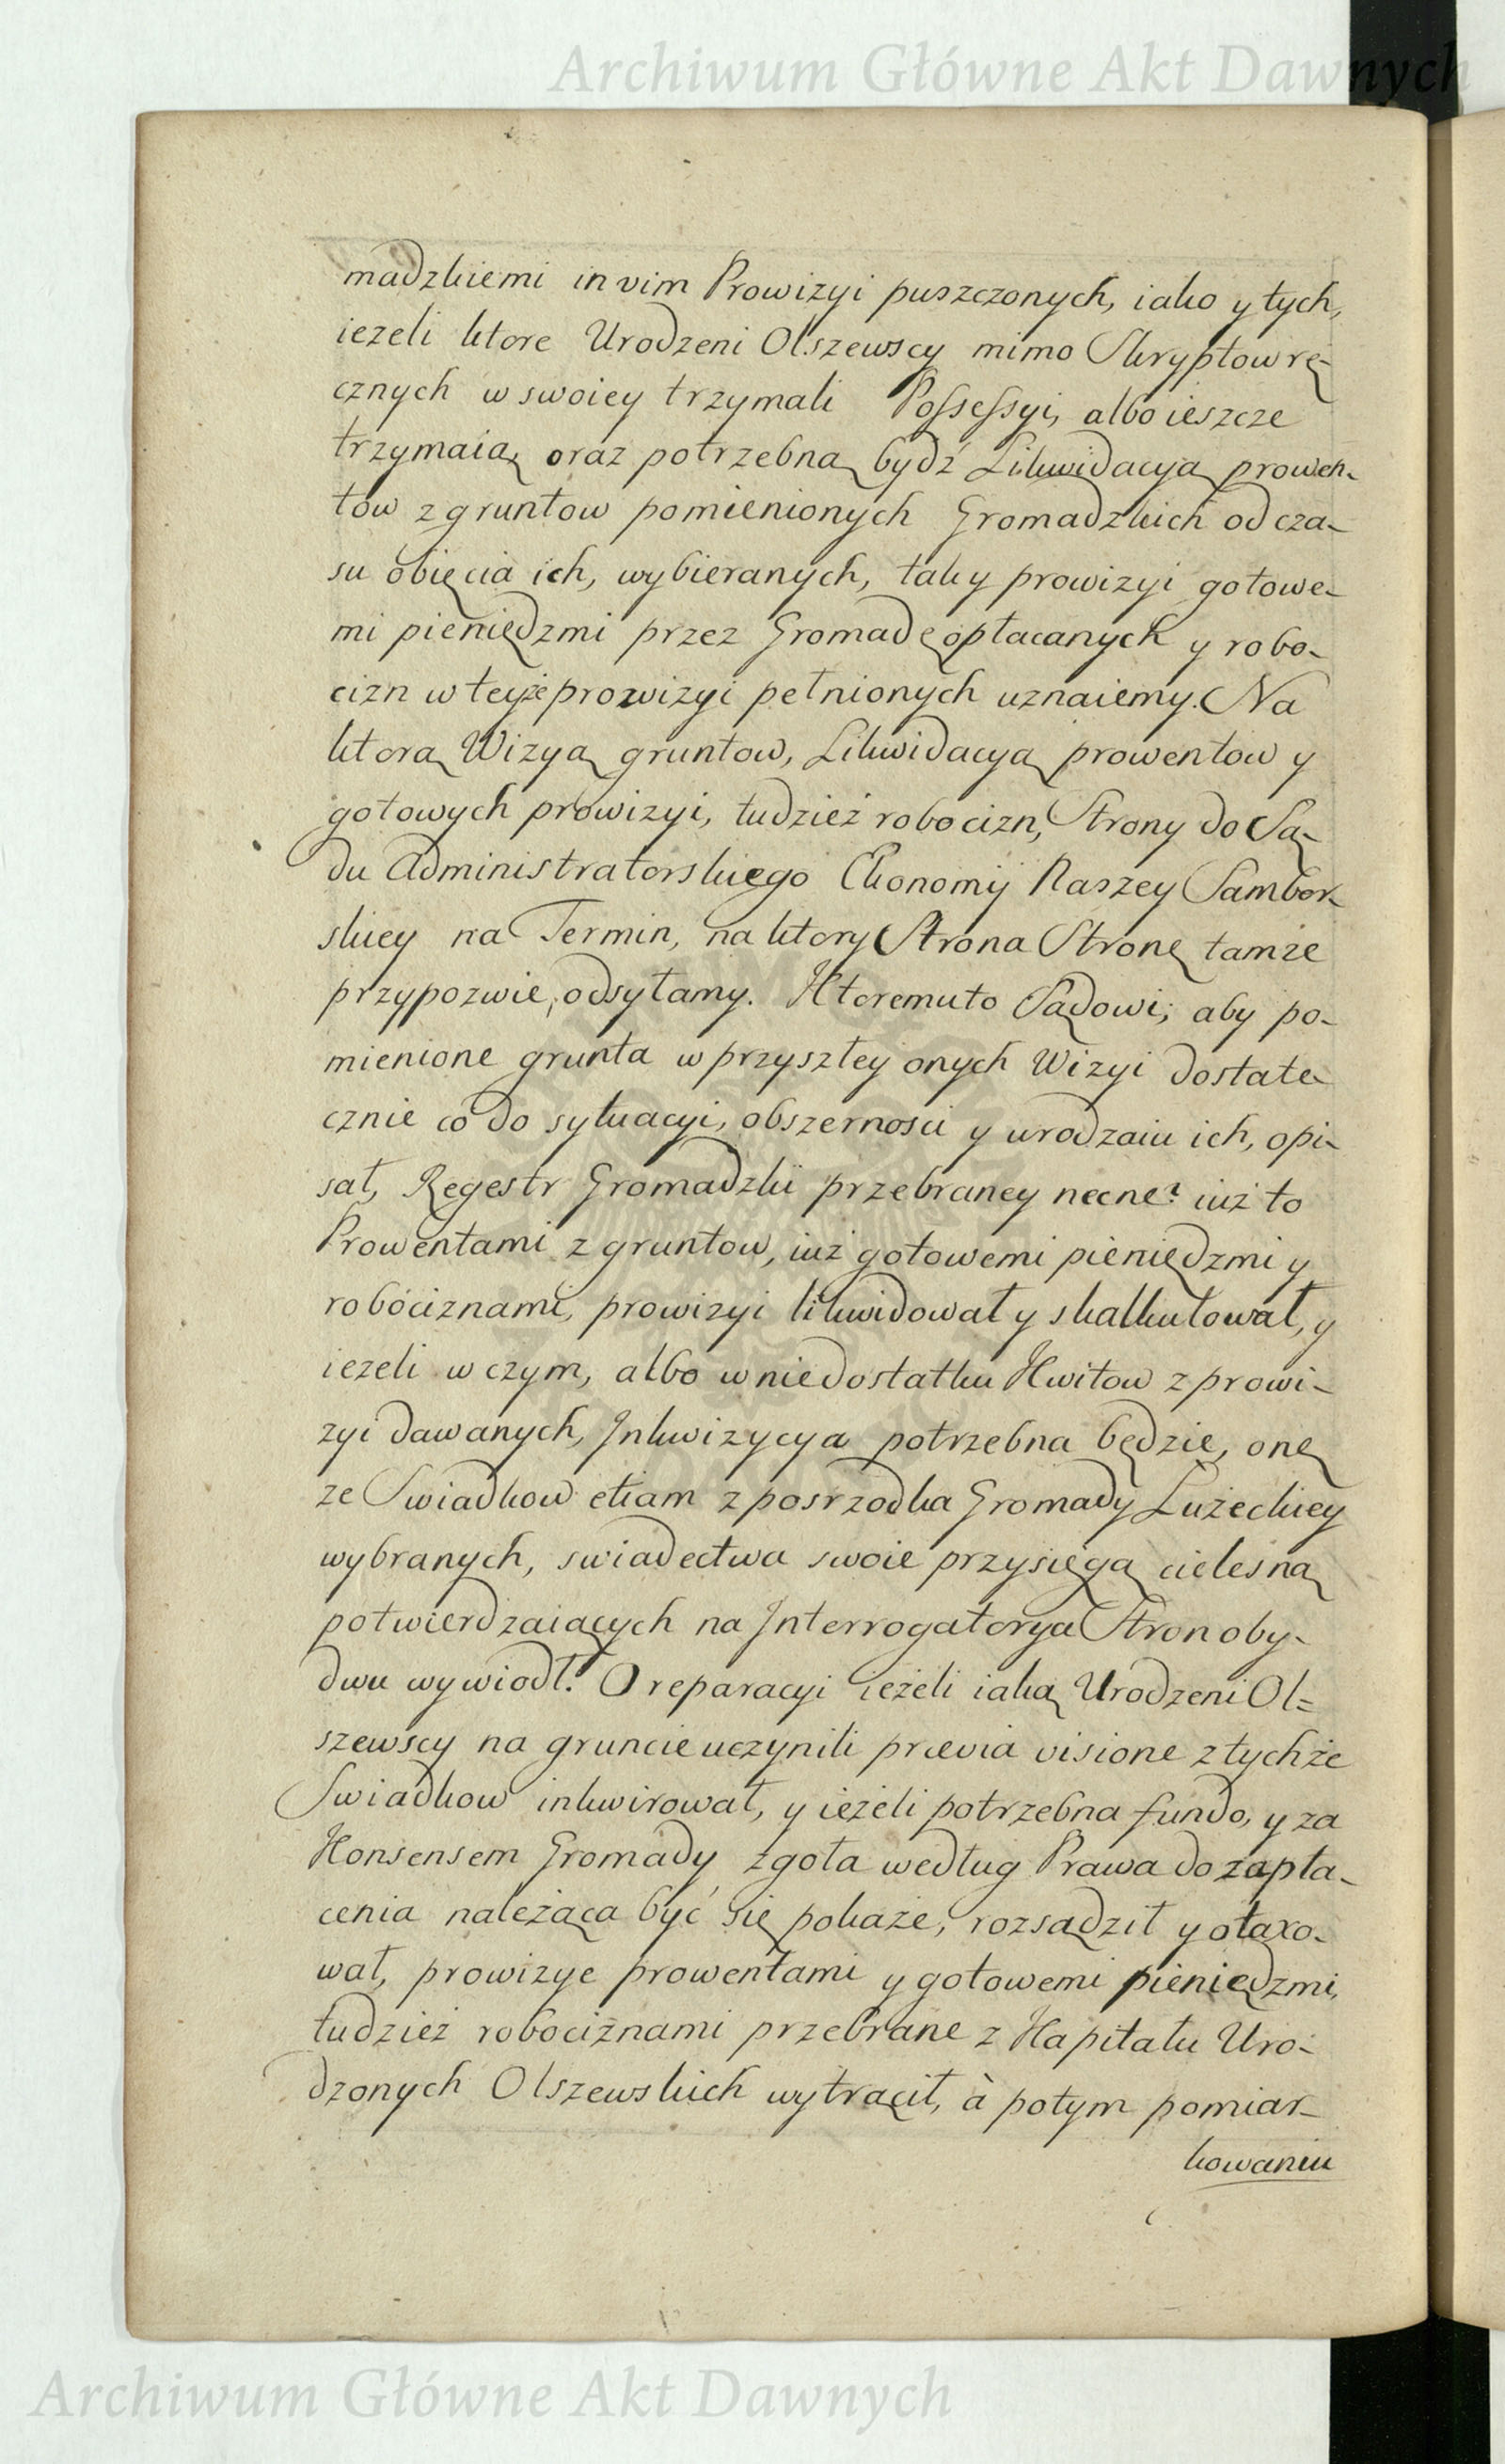 Archiwum Główne Akt Dawnych
madzkiemi in vim Prowizyi puszczonych, iako y tych,
iezeli ktore Urodzeni Olszewscy mimo Skryptow rę-
cznych w swoiey trzymali Possessyi, albo ieszcze
trzymaią, oraz potrzebną bydź Likwidacyą prowen-
tow z gruntow pomienionych Gromadzkich od cza-
su obięcia ich, wybieranych, tak y prowizyi gotowe-
mi pieniędzmi przez Gromadę opłacanych y robo-
cizn w teyże prowizyi pełnionych uznaiemy. Na
ktorą Wizyą gruntow, Likwidacyą prowentow y
gotowych prowizyi, tudzież robocizn, Strony do Są-
du Administratorskiego Ekonomij Naszey Sambor-
skiey na Termin, na ktory Strona Stronę tamże
przypozwie, odsyłamy. Ktoremuto Sądowi, aby po-
mienione grunta w przyszłey onych Wizyi dostate-
cznie co do sytuacyi, obszernosci y urodzaiu ich, opi-
sał, Regestr Gromadzkii przebraney necne? iuż to
Prowentami z gruntow, iuż gotowemi pieniędzmi y
robociznami, prowizyi likwidował y skalkulował, y
iezeli w czym, albo w niedostatku Kwitow z prowi-
zyi dawanych, Inkwizycya potrzebna będzie, onę
ze Swiadkow etiam z posrzodka Gromady Łużeckiey
wybranych, swiadectwa swoie przysięgą cielesną
potwierdzaiących na Interrogatorya Stron oby-
dwu wywiodł. O reparacyi ieżeli iaką Urodzeni Ol=
szewscy na gruncie uczynili prævia visione z tychże
Swiadkow inkwirował, y ieżeli potrzebna fundo, y za
Konsensem Gromady zgoła według Prawa do zapła-
cenia należąca być się pokaże, rozsądził y otaxo-
wał, prowizye prowentami y gotowemi pieniędzmi,
tudzież robociznami przebrane z Kapitału Uro-
dzonych Olszewskich wytrącił, à potym pomiar-
kowaniu
Archiwum Główne Akt Dawnych